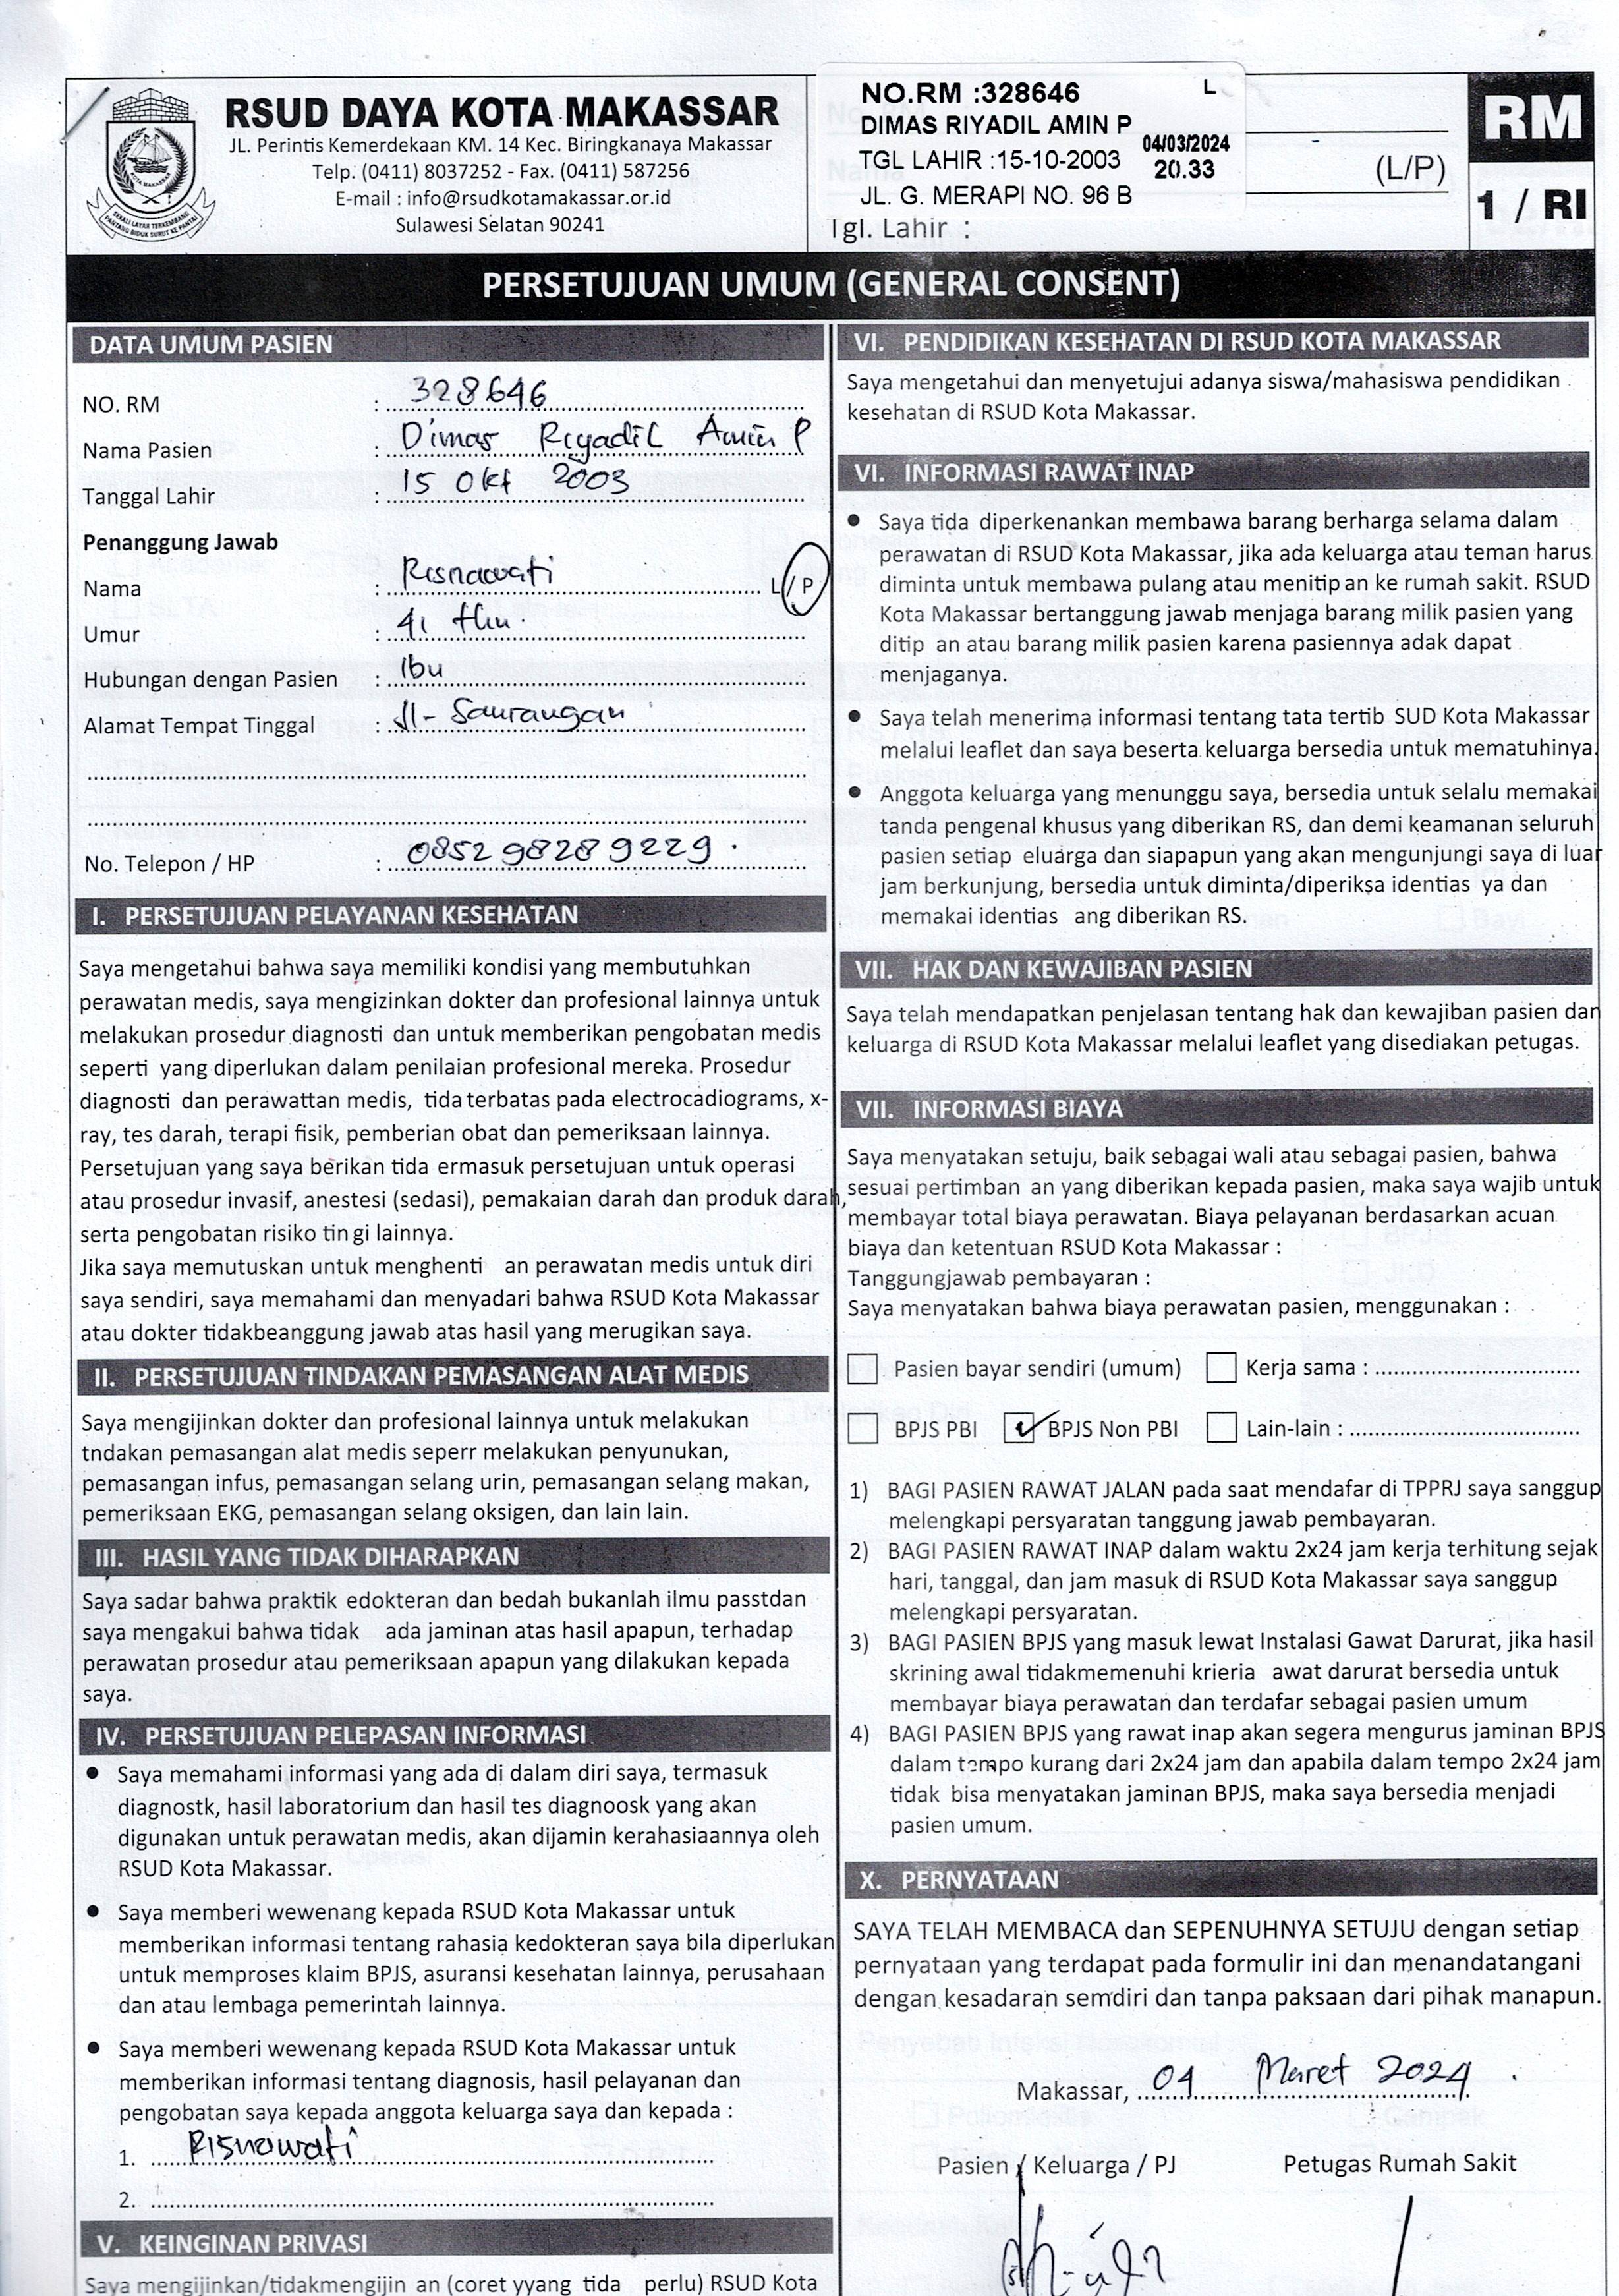 RSUD DAYA KOTA MAKASSAR
JL. Perintis Kemerdekaan KM. 14 Kec. Biringkanaya Makassar
Telp. (0411) 8037252 - Fax. (0411) 587256
E-mail : info@rsudkotamakassar.or.id
Sulawesi Selatan 90241
NO.RM :328646 L
DIMAS RIYADIL AMIN P
04/03/2024
TGL LAHIR :15-10-2003
20.33
JL. G. MERAPI NO. 96 B
(L/P)
Tgl. Lahir :
RM
1 / RI
PERSETUJUAN UMUM (GENERAL CONSENT)
DATA UMUM PASIEN
NO. RM : 328646
Nama Pasien : Dimas Riyadil Amin P
Tanggal Lahir : 15 Okt 2003
Penanggung Jawab
Nama : Risnawati L/P
Umur : 41 thn.
Hubungan dengan Pasien : Ibu
Alamat Tempat Tinggal : Jl-
No. Telepon / HP : 085298289229.
I. PERSETUJUAN PELAYANAN KESEHATAN
Saya mengetahui bahwa saya memiliki kondisi yang membutuhkan
perawatan medis, saya mengizinkan dokter dan profesional lainnya untuk
melakukan prosedur diagnosti dan untuk memberikan pengobatan medis
seperti yang diperlukan dalam penilaian profesional mereka. Prosedur
diagnosti dan perawattan medis, tida terbatas pada electrocadiograms, x-
ray, tes darah, terapi fisik, pemberian obat dan pemeriksaan lainnya.
Persetujuan yang saya berikan tida ermasuk persetujuan untuk operasi
atau prosedur invasif, anestesi (sedasi), pemakaian darah dan produk darah,
serta pengobatan risiko tin gi lainnya.
Jika saya memutuskan untuk menghenti an perawatan medis untuk diri
saya sendiri, saya memahami dan menyadari bahwa RSUD Kota Makassar
atau dokter tidakbeanggung jawab atas hasil yang merugikan saya.
II. PERSETUJUAN TINDAKAN PEMASANGAN ALAT MEDIS
Saya mengijinkan dokter dan profesional lainnya untuk melakukan
tndakan pemasangan alat medis seperr melakukan penyunukan,
pemasangan infus, pemasangan selang urin, pemasangan selang makan,
pemeriksaan EKG, pemasangan selang oksigen, dan lain lain.
III. HASIL YANG TIDAK DIHARAPKAN
Saya sadar bahwa praktik edokteran dan bedah bukanlah ilmu passtdan
saya mengakui bahwa tidak ada jaminan atas hasil apapun, terhadap
perawatan prosedur atau pemeriksaan apapun yang dilakukan kepada
saya.
IV. PERSETUJUAN PELEPASAN INFORMASI
● Saya memahami informasi yang ada di dalam diri saya, termasuk
diagnostk, hasil laboratorium dan hasil tes diagnoosk yang akan
digunakan untuk perawatan medis, akan dijamin kerahasiaannya oleh
RSUD Kota Makassar.
● Saya memberi wewenang kepada RSUD Kota Makassar untuk
memberikan informasi tentang rahasia kedokteran saya bila diperlukan
untuk memproses klaim BPJS, asuransi kesehatan lainnya, perusahaan
dan atau lembaga pemerintah lainnya.
● Saya memberi wewenang kepada RSUD Kota Makassar untuk
memberikan informasi tentang diagnosis, hasil pelayanan dan
pengobatan saya kepada anggota keluarga saya dan kepada :
1. Risnawati
2.
V. KEINGINAN PRIVASI
Saya mengijinkan/tidakmengijin an (coret yyang tida perlu) RSUD Kota
VI. PENDIDIKAN KESEHATAN DI RSUD KOTA MAKASSAR
Saya mengetahui dan menyetujui adanya siswa/mahasiswa pendidikan
kesehatan di RSUD Kota Makassar.
VI. INFORMASI RAWAT INAP
● Saya tida diperkenankan membawa barang berharga selama dalam
perawatan di RSUD Kota Makassar, jika ada keluarga atau teman harus
diminta untuk membawa pulang atau menitip an ke rumah sakit. RSUD
Kota Makassar bertanggung jawab menjaga barang milik pasien yang
ditip an atau barang milik pasien karena pasiennya adak dapat
menjaganya.
● Saya telah menerima informasi tentang tata tertib SUD Kota Makassar
melalui leaflet dan saya beserta keluarga bersedia untuk mematuhinya.
● Anggota keluarga yang menunggu saya, bersedia untuk selalu memakai
tanda pengenal khusus yang diberikan RS, dan demi keamanan seluruh
pasien setiap eluarga dan siapapun yang akan mengunjungi saya di luar
jam berkunjung, bersedia untuk diminta/diperiksa identias ya dan
memakai identias ang diberikan RS.
VII. HAK DAN KEWAJIBAN PASIEN
Saya telah mendapatkan penjelasan tentang hak dan kewajiban pasien dan
keluarga di RSUD Kota Makassar melalui leaflet yang disediakan petugas.
VII. INFORMASI BIAYA
Saya menyatakan setuju, baik sebagai wali atau sebagai pasien, bahwa
sesuai pertimban an yang diberikan kepada pasien, maka saya wajib untuk
membayar total biaya perawatan. Biaya pelayanan berdasarkan acuan
biaya dan ketentuan RSUD Kota Makassar :
Tanggungjawab pembayaran :
Saya menyatakan bahwa biaya perawatan pasien, menggunakan :
Pasien bayar sendiri (umum) Kerja sama :
BPJS PBI ✓ BPJS Non PBI Lain-lain :
1) BAGI PASIEN RAWAT JALAN pada saat mendafar di TPPRJ saya sanggup
melengkapi persyaratan tanggung jawab pembayaran.
2) BAGI PASIEN RAWAT INAP dalam waktu 2x24 jam kerja terhitung sejak
hari, tanggal, dan jam masuk di RSUD Kota Makassar saya sanggup
melengkapi persyaratan.
3) BAGI PASIEN BPJS yang masuk lewat Instalasi Gawat Darurat, jika hasil
skrining awal tidakmemenuhi krieria awat darurat bersedia untuk
membayar biaya perawatan dan terdafar sebagai pasien umum
4) BAGI PASIEN BPJS yang rawat inap akan segera mengurus jaminan BPJS
dalam tempo kurang dari 2x24 jam dan apabila dalam tempo 2x24 jam
tidak bisa menyatakan jaminan BPJS, maka saya bersedia menjadi
pasien umum.
X. PERNYATAAN
SAYA TELAH MEMBACA dan SEPENUHNYA SETUJU dengan setiap
pernyataan yang terdapat pada formulir ini dan menandatangani
dengan kesadaran semdiri dan tanpa paksaan dari pihak manapun.
Makassar, 04 Maret 2024
Pasien / Keluarga / PJ Petugas Rumah Sakit